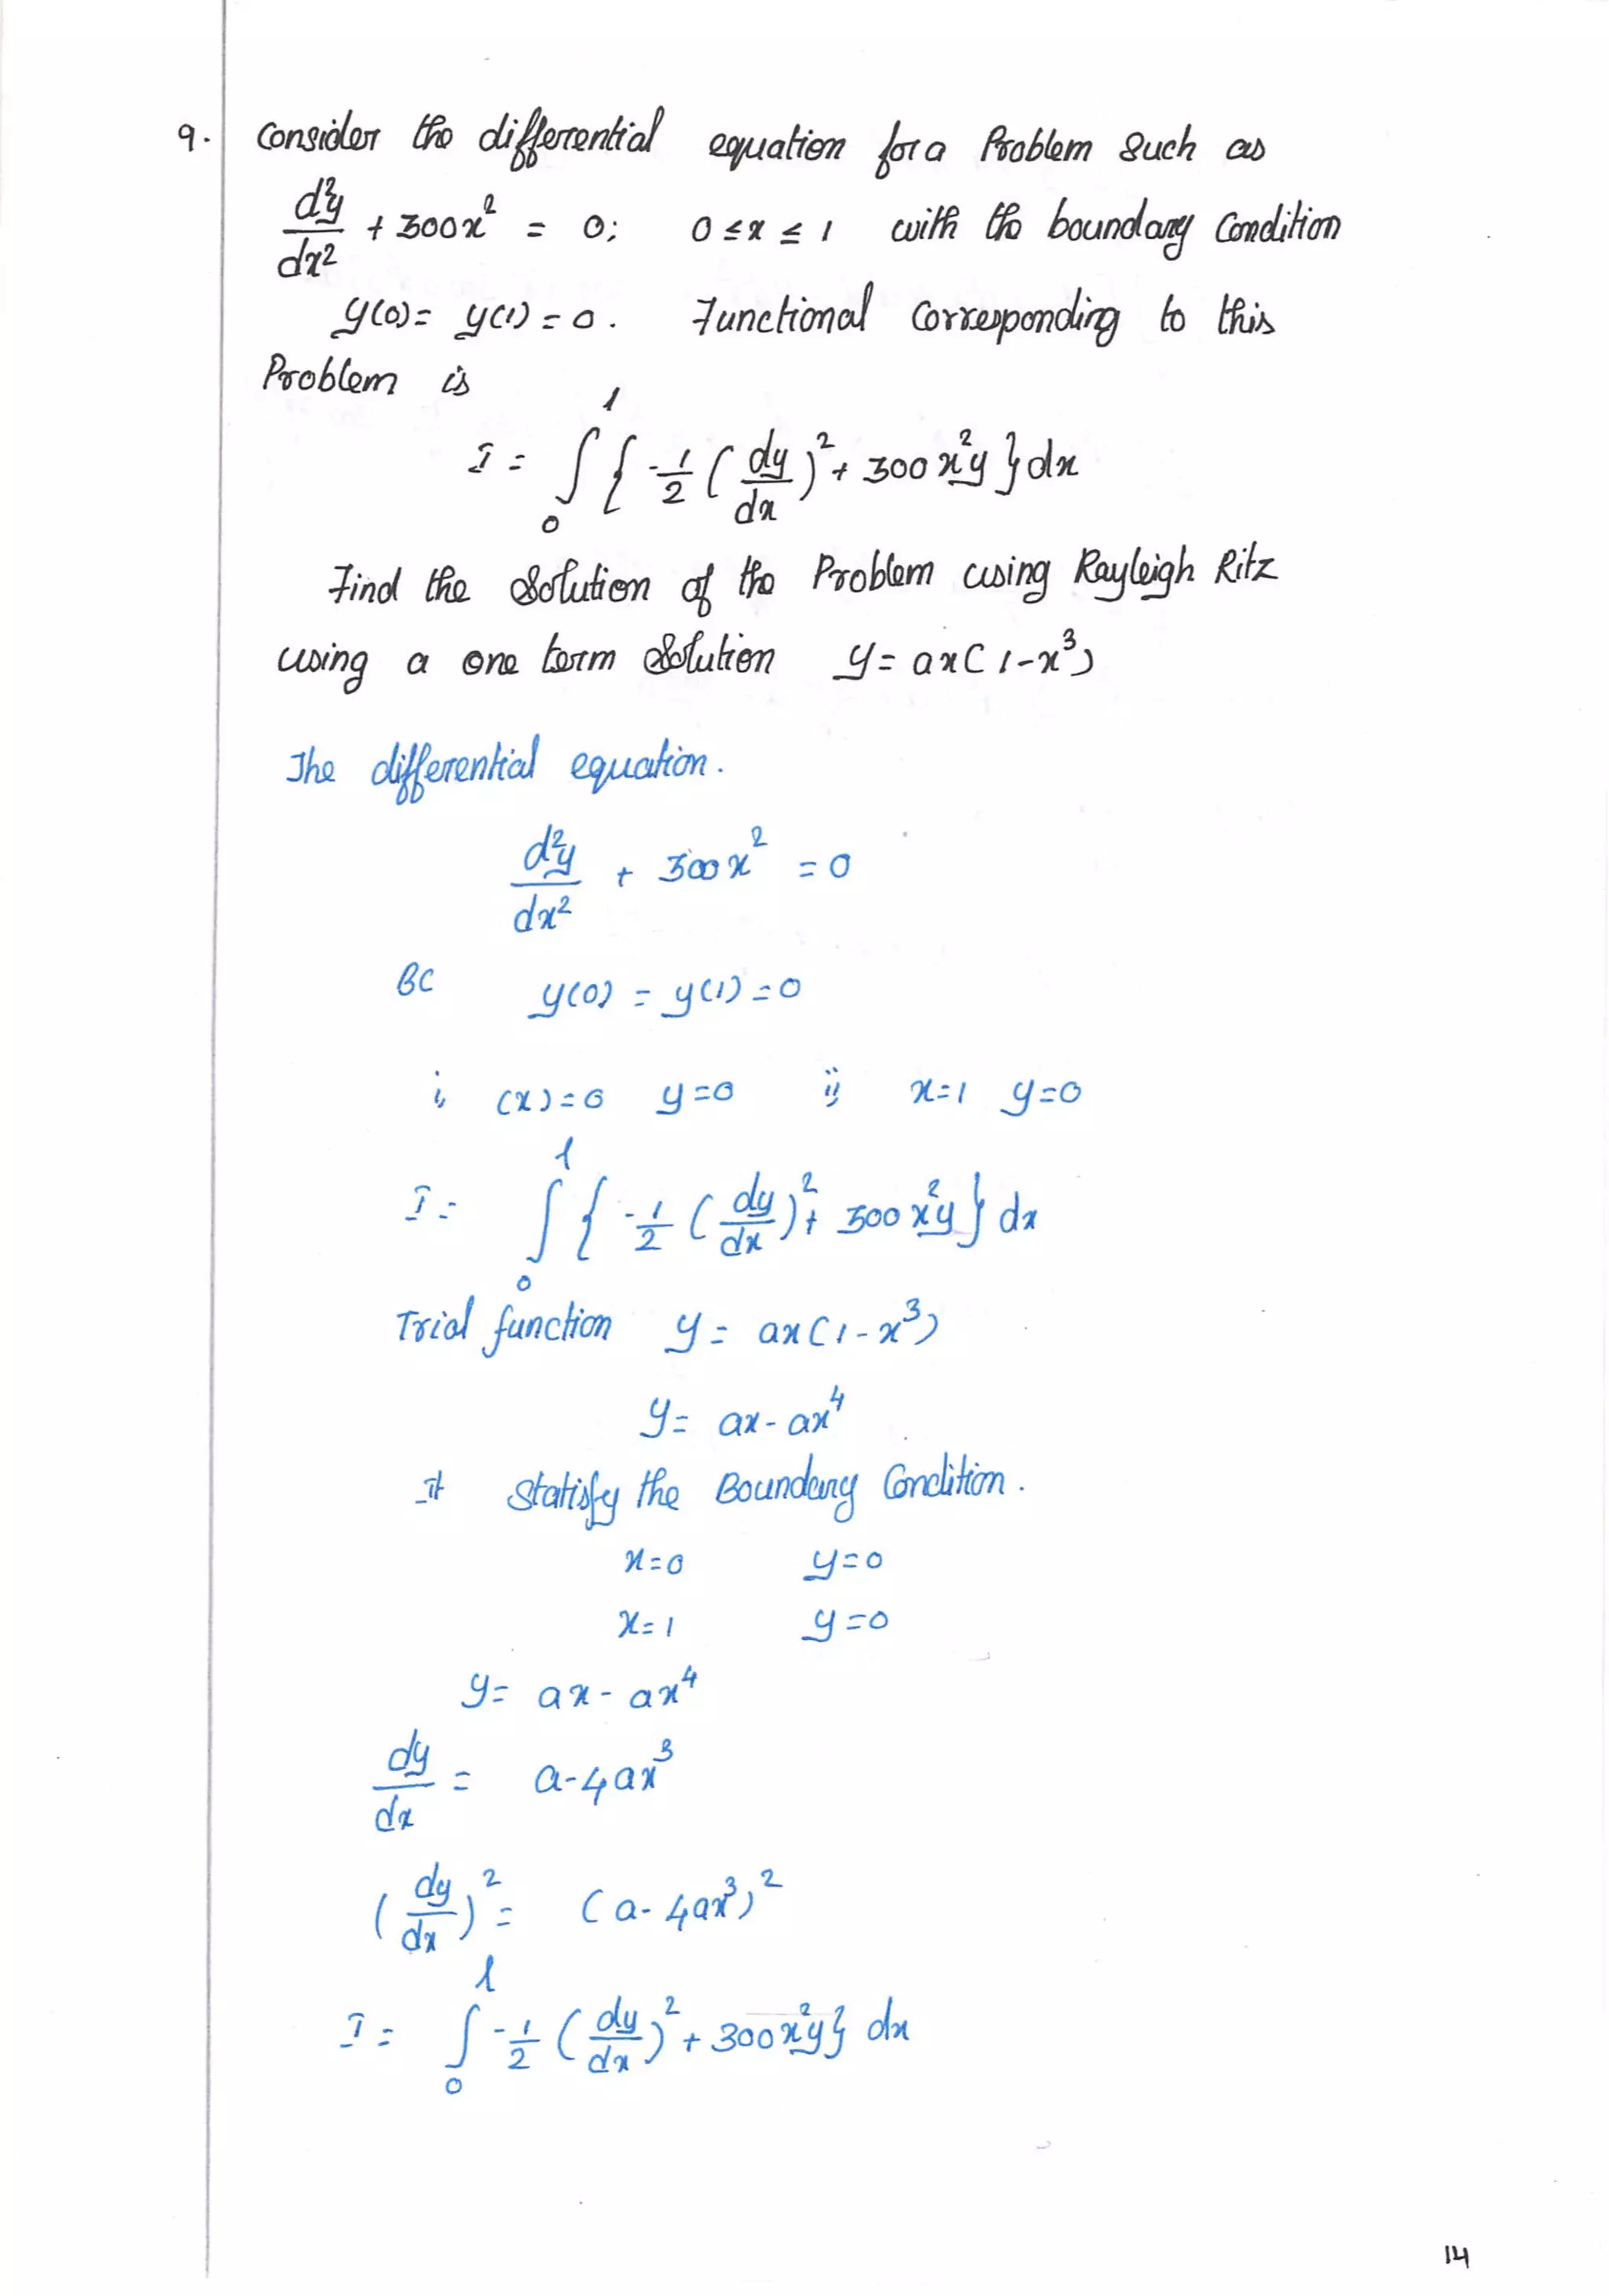 9. Consider the differential equation for a Problem Such as
d²y/dx² + 300x² = 0; 0 ≤ x ≤ 1 with the boundary Condition
y(0) = y(1) = 0. Functional Corresponding to this
Problem is
I = ∫₀¹ { -1/2 (dy/dx)² + 300x²y } dx
Find the Solution of the Problem using Rayleigh Ritz
using a one term Solution y = ax(1-x³)
The differential equation.
d²y/dx² + 300x² = 0
BC y(0) = y(1) = 0
i, (x) = 0 y = 0 ii, x = 1 y = 0
I = ∫₀¹ { -1/2 (dy/dx)² + 300x²y } dx
Trial function y = ax(1-x³)
y = ax - ax⁴
It Statisfy the Boundary Condition.
x = 0 y = 0
x = 1 y = 0
y = ax - ax⁴
dy/dx = a - 4ax³
(dy/dx)² = (a - 4ax³)²
I = ∫₀¹ -1/2 (dy/dx)² + 300x²y} dx
14